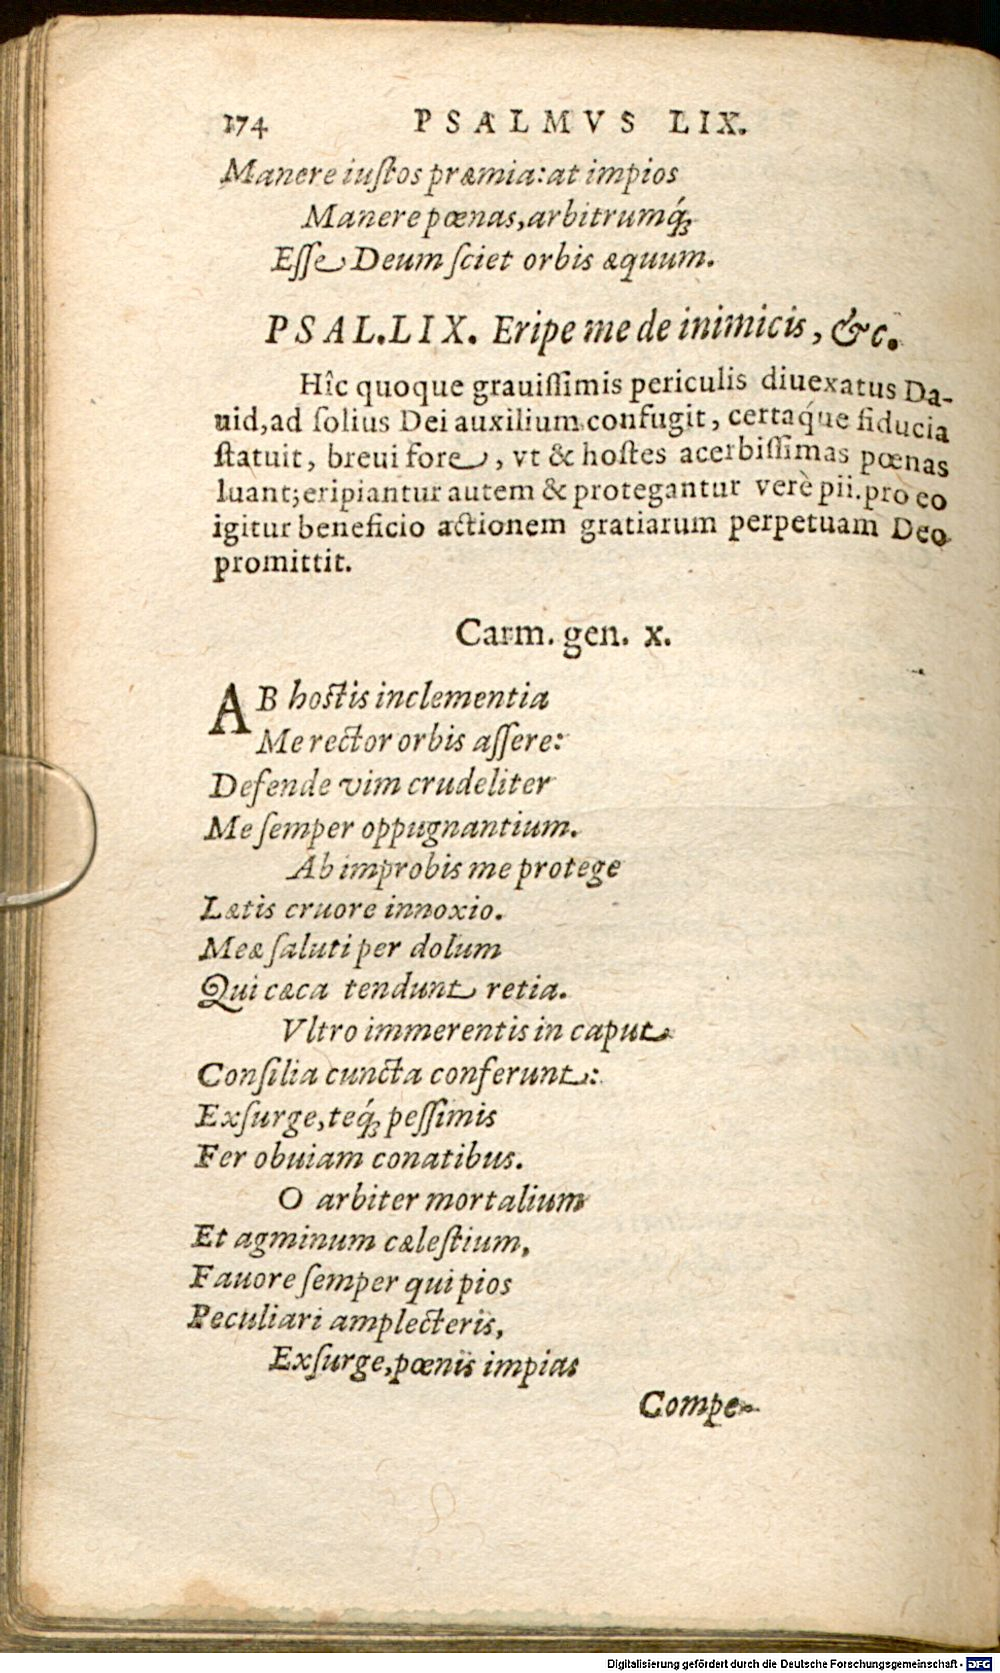 174 PSALMVS LIX.
Manere iuſtos præmia: at impios
Manere pœnas, arbitrumq́;
Eſſe Deum ſciet orbis æquum.
PSAL. LIX. Eripe me de inimicis, &c.
Hîc quoque grauiſſimis periculis diuexatus Da-
uid, ad ſolius Dei auxilium confugit, certaq́ue fiducia
ſtatuit, breui fore, vt & hoſtes acerbiſſimas pœnas
luant; eripiantur autem & protegantur verè pii. pro eo
igitur beneficio actionem gratiarum perpetuam Deo
promittit.
Carm. gen. x.
AB hoſtis inclementia
Me rector orbis aſſere:
Defende vim crudeliter
Me ſemper oppugnantium.
Ab improbis me protege
Lætis cruore innoxio.
Meæ ſaluti per dolum
Qui cæca tendunt retia.
Vltro immerentis in caput
Conſilia cuncta conferunt:
Exſurge, teq́; peſſimis
Fer obuiam conatibus.
O arbiter mortalium
Et agminum cæleſtium,
Fauore ſemper qui pios
Peculiari amplecteris,
Exſurge, pœnis impias
Compe-
Digitalisierung gefördert durch die Deutsche Forschungsgemeinschaft - DFG